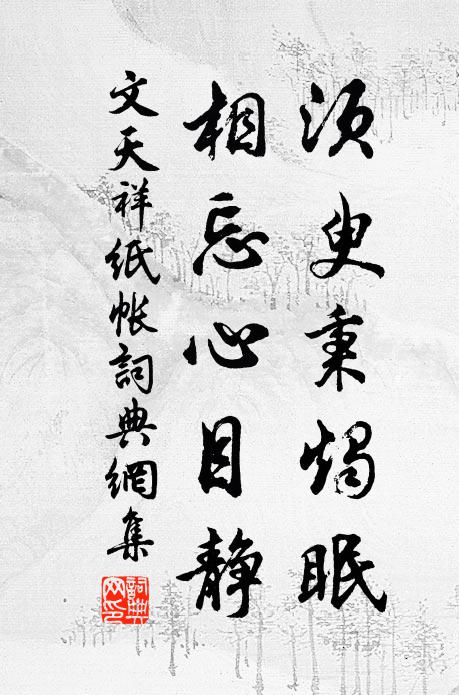 須臾秉燭眠
相忘心目静
文天祥紙帳詞典網集
詞典
網印